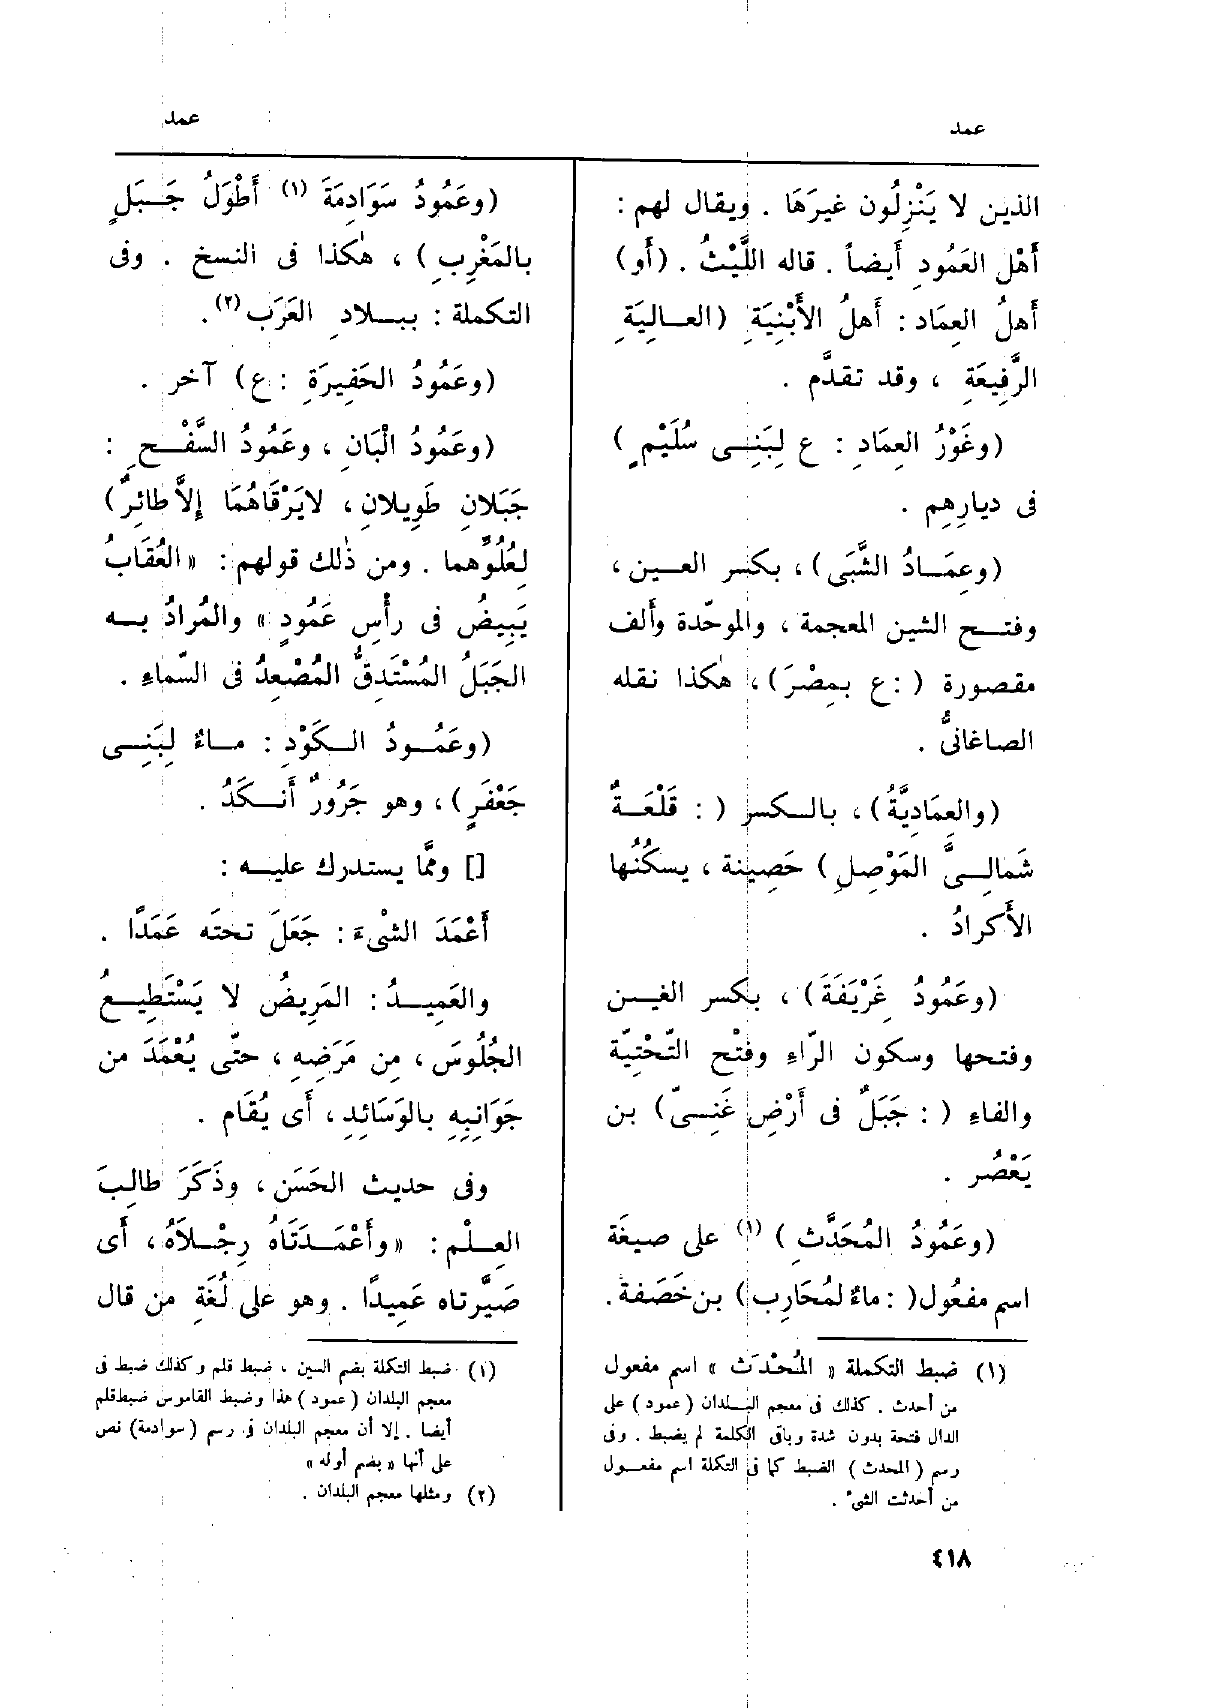 عمد
عمد
الذين لا يَنْزِلُون غيرَهَا . ويقال لهم :
أَهْل العَمُودِ أَيضاً . قاله اللَّيْثُ . (أَو)
أَهلُ العِمَاد : أَهلُ الأَبْنِيَةِ (العـالِيَةِ
الرَّفِيعَةِ ، وقد تقدَّم .
(وغَوْرُ العِمَادِ : ع لِبَنِى سُلَيْمٍ )
فى ديارِهِم .
(وعِمَـادُ الشَّبَى)، بكسر العـين،
وفتـح الشين المعجمة ، والموحّدة وأَلف
مقصورة ( :ع بمِصْرَ)، هٰكذا نقله
الصاغانىُّ .
(والعِمَادِيَّةُ)، بالـكسر ( : قَلْعَـةٌ
شَمالِـىَّ المَوْصِلِ) حَصِينة ، يسكُنُها
الأَكرادُ .
(وعَمُودُ غِرْيَفَةَ) ، بكسر الغيـن
وفتحها وسكون الرّاءِ وفتْح التّحْتِيّة
والفاءِ ( : جَبَلٌ فى أَرْضِ غَنِـىّ) بن
يَعْصُر .
(وعَمُودُ المُحَدَّثِ ) (١) على صيغَة
اسم مفعُول( : ماءٌ لمُحَارِب) بن خَصَفة .
(١) ضبط التكملة « المُحْدَث » اسم مفعول
من أحدث . كذلك فى معجم البـلدان (عمود) على
الدال فتحة بدون شدة وباقى الكلمة لم يضبط . وفى
رسم (المحدث) الضبط كما فى التكلة اسم مفعـول
من أحدثت الشىء .
(وعَمُودُ سَوَادِمَةَ (١) أَطْوَلُ جَـبَلٍ
بالمَغْرِبِ) ، هٰكذا فى النسخ . وفى
التكملة : ببـلادِ العَرَب (٢) .
(وعَمُودُ الحَفِيرَةِ :ع) آخر .
(وعَمُودُ الْبَانِ ، وعَمُودُ السَّفْـحِ :
جَبَلانِ طَوِيلانِ، لايَرْقَاهُمَا إِلاَّ طائِرٌ)
لِعُلُوِّهما . ومن ذٰلك قولهم : « العُقَابُ
يَبِيضُ فى رأْسِ عَمُودٍ » والمُرادُ بـه
الجَبَلُ المُسْتَدِقُّ المُصْعِدُ فى السّماءِ .
(وعَمُـودُ الـكَوْدِ : مـاءٌ لِبَنِـى
جَعْفَرٍ)، وهو جَرُورٌ أَنـكَدُ .
[] وممَّا يستدرك عليـه :
أَعْمَدَ الشىْءَ : جَعَلَ تحتَه عَمَدًا .
والعَمِيـدُ : المَرِيضُ لا يَسْتَطِيـعُ
الجُلُوسَ ، مِن مَرَضِهِ ، حتّى يُعْمَدَ من
جَوَانِبِهِ بالوَسَائِدِ، أَى يُقَام .
وفى حديث الحَسَن ، وذَكَرَ طالِبَ
العِـلْم : « وأَعْمَـدَتَاهُ رِجْـلاَهُ ، أَى
صَيَّرتاه عَمِيدًا . وهو على لُغَةِ من قال
(١) ضبط التكلة بضم السين ، ضبط قلم وكذلك ضبط فى
معجم البلدان (عمود) هذا وضبط القاموس ضبط قلم
أيضا . إلا أن معجم البلدان فى رسم (سوادمة) نص
على أنها « بضم أوله »
(٢) ومثلها معجم البلدان .
٤١٨